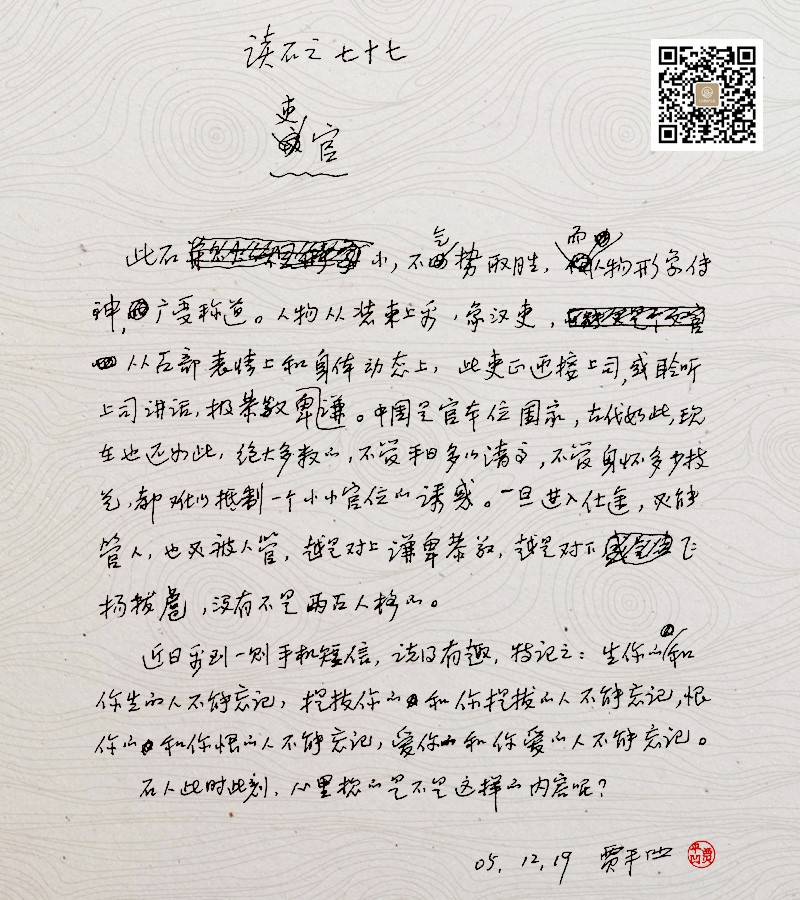 读石之七十七
吏官
此石小，不以气势取胜，而人物形象传
神，广受称道。人物从装束上看，象汉吏，
从面部表情上和身体动态上，此吏正迎接上司，或聆听
上司讲话，极恭敬卑谦。中国是官本位国家，古代如此，现
在也还如此，绝大多数的，不管平日多么清高，不管身怀多少技
艺，都难以抵制一个小小官位的诱惑。一旦进入仕途，又能
管人，也又被人管，越是对上谦卑恭敬，越是对下飞
扬拔扈，没有不是两面人格的。
近日看到一则手机短信，说得有趣，特记之：生你的和
你生的人不能忘记，提拔你的和你提拔的人不能忘记，恨
你的和你恨的人不能忘记，爱你的和你爱的人不能忘记。
石人此时此刻，心里想的是不是这样的内容呢？
05.12.19 贾平凹